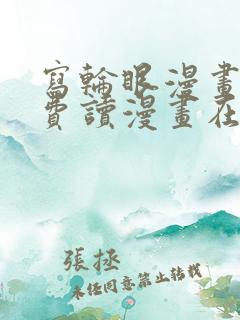 寫輪眼漫畫
費讀漫畫在
張拯
未任同意禁止轉載